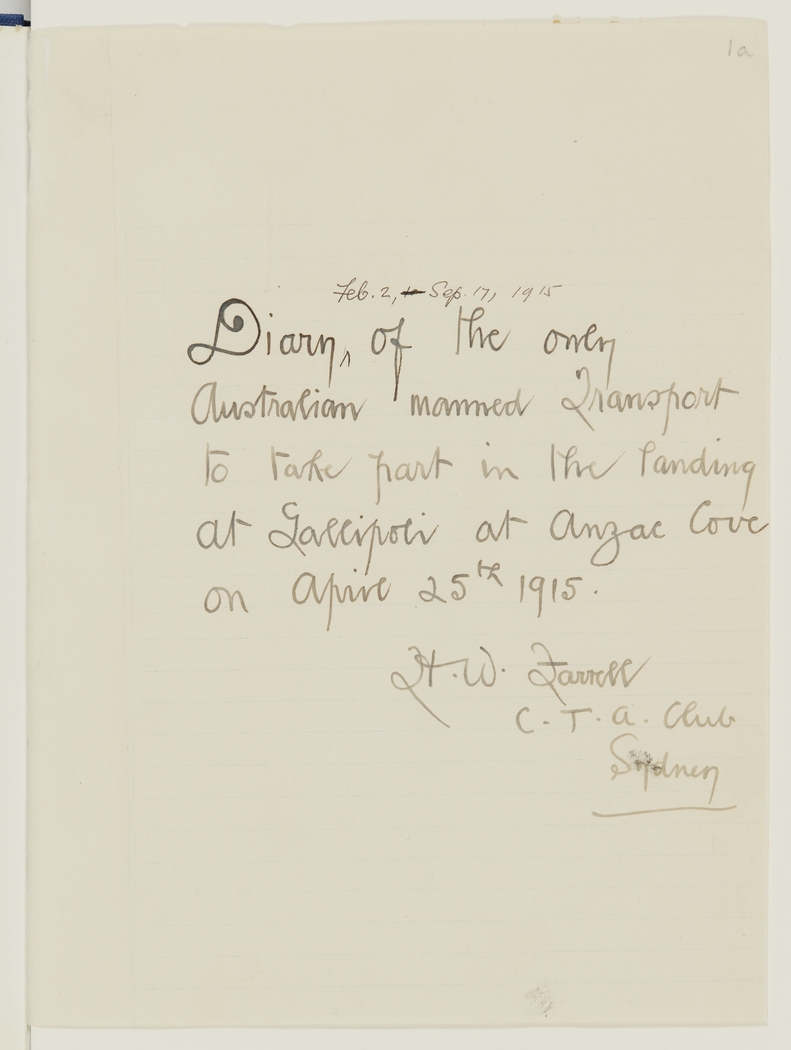 1a
Feb. 2, to Sep. 17, 1915
Diary, of the only
Australian manned Transport
to take part in the landing
at Gallipoli at Anzac Cove
on April 25th 1915.
H. W. Farrell
C. T. A. Club
Sydney